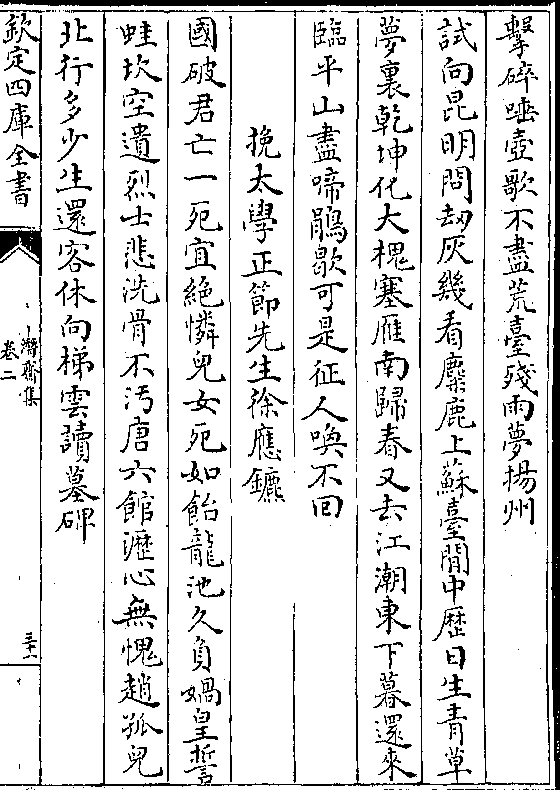 擊碎唾壺歌不盡荒臺殘雨夢揚州
試向昆明問劫灰幾看麋鹿上蘇臺閒中歴日生青草
夢裏乾坤化大槐塞雁南歸春又去江潮東下暮還來
臨平山盡啼鵑歇可是征人喚不回
挽太學正節先生徐應鑣
國破君亡一死宜絶憐兒女死如飴龍池久負媧皇誓
蛙坎空遺烈士悲洗骨不汚唐六館瀝心無愧趙孤兒
北行多少生還客休向梯雲讀墓碑
欽定四庫全書
潛齋集
卷二